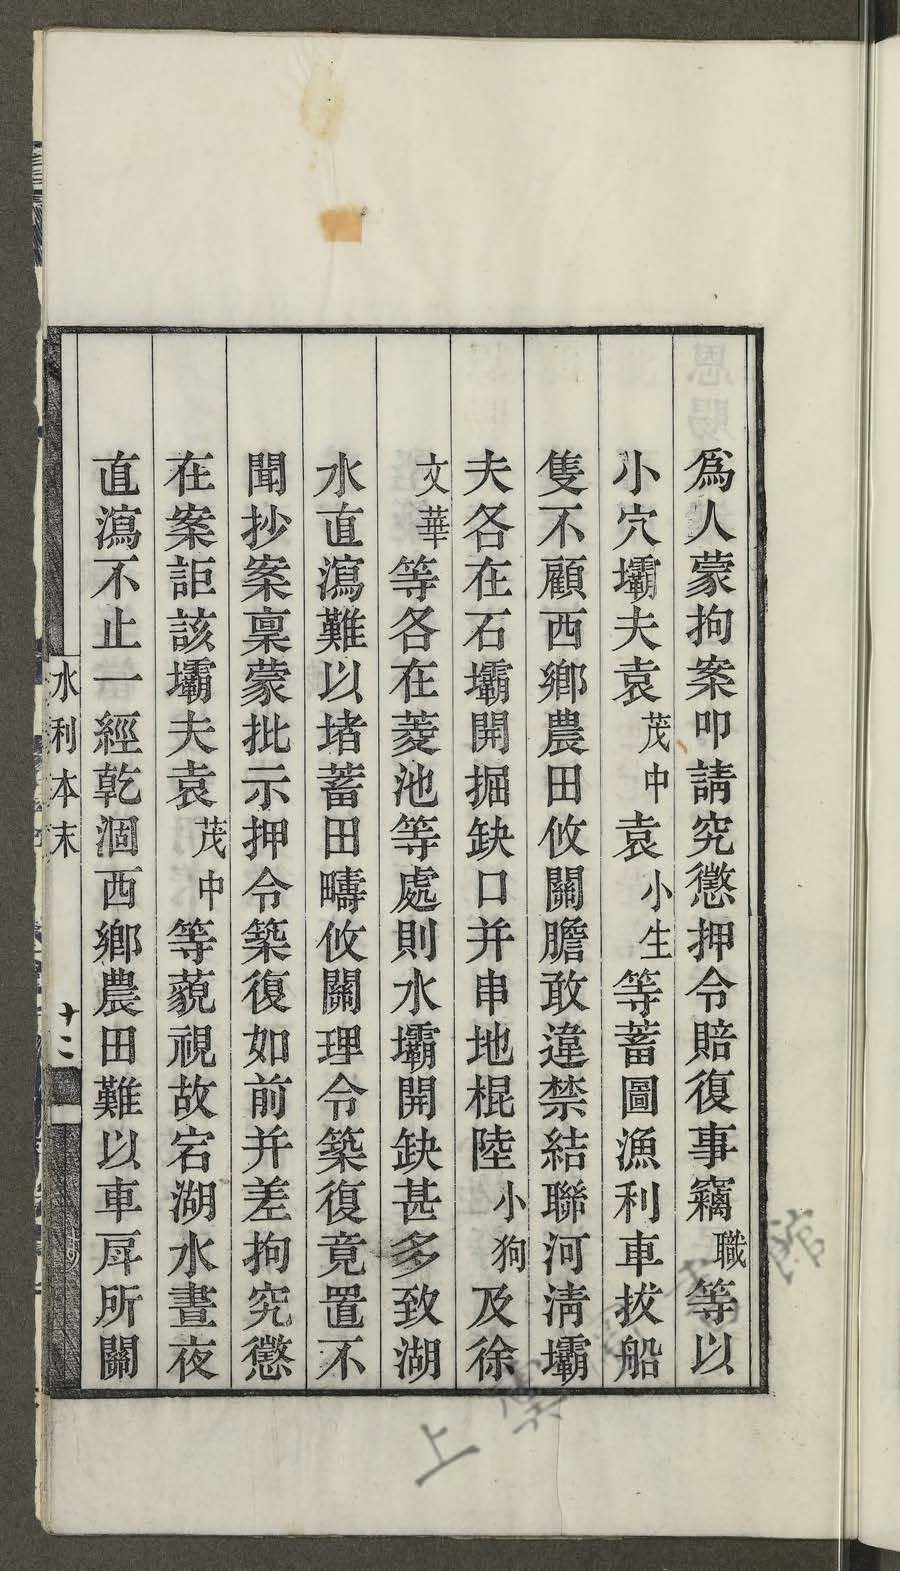 為人蒙拘案叩請究懲押令賠復事竊職等以
小穴壩夫袁茂中袁小生等蓄圖漁利車拔船
隻不顧西鄉農田攸關膽敢違禁結聯河淸壩
夫各在石壩開掘缺口并串地棍陸小狗及徐
文華等各在菱池等處則水壩開缺甚多致湖
水直瀉難以堵蓄田疇攸關理令築復竟置不
聞抄案稟蒙批示押令築復如前并差拘究懲
在案詎該壩夫袁茂中等藐視故宕湖水晝夜
直瀉不止一經乾涸西鄉農田難以車戽所關
水利本末
十二
上虞圖書館